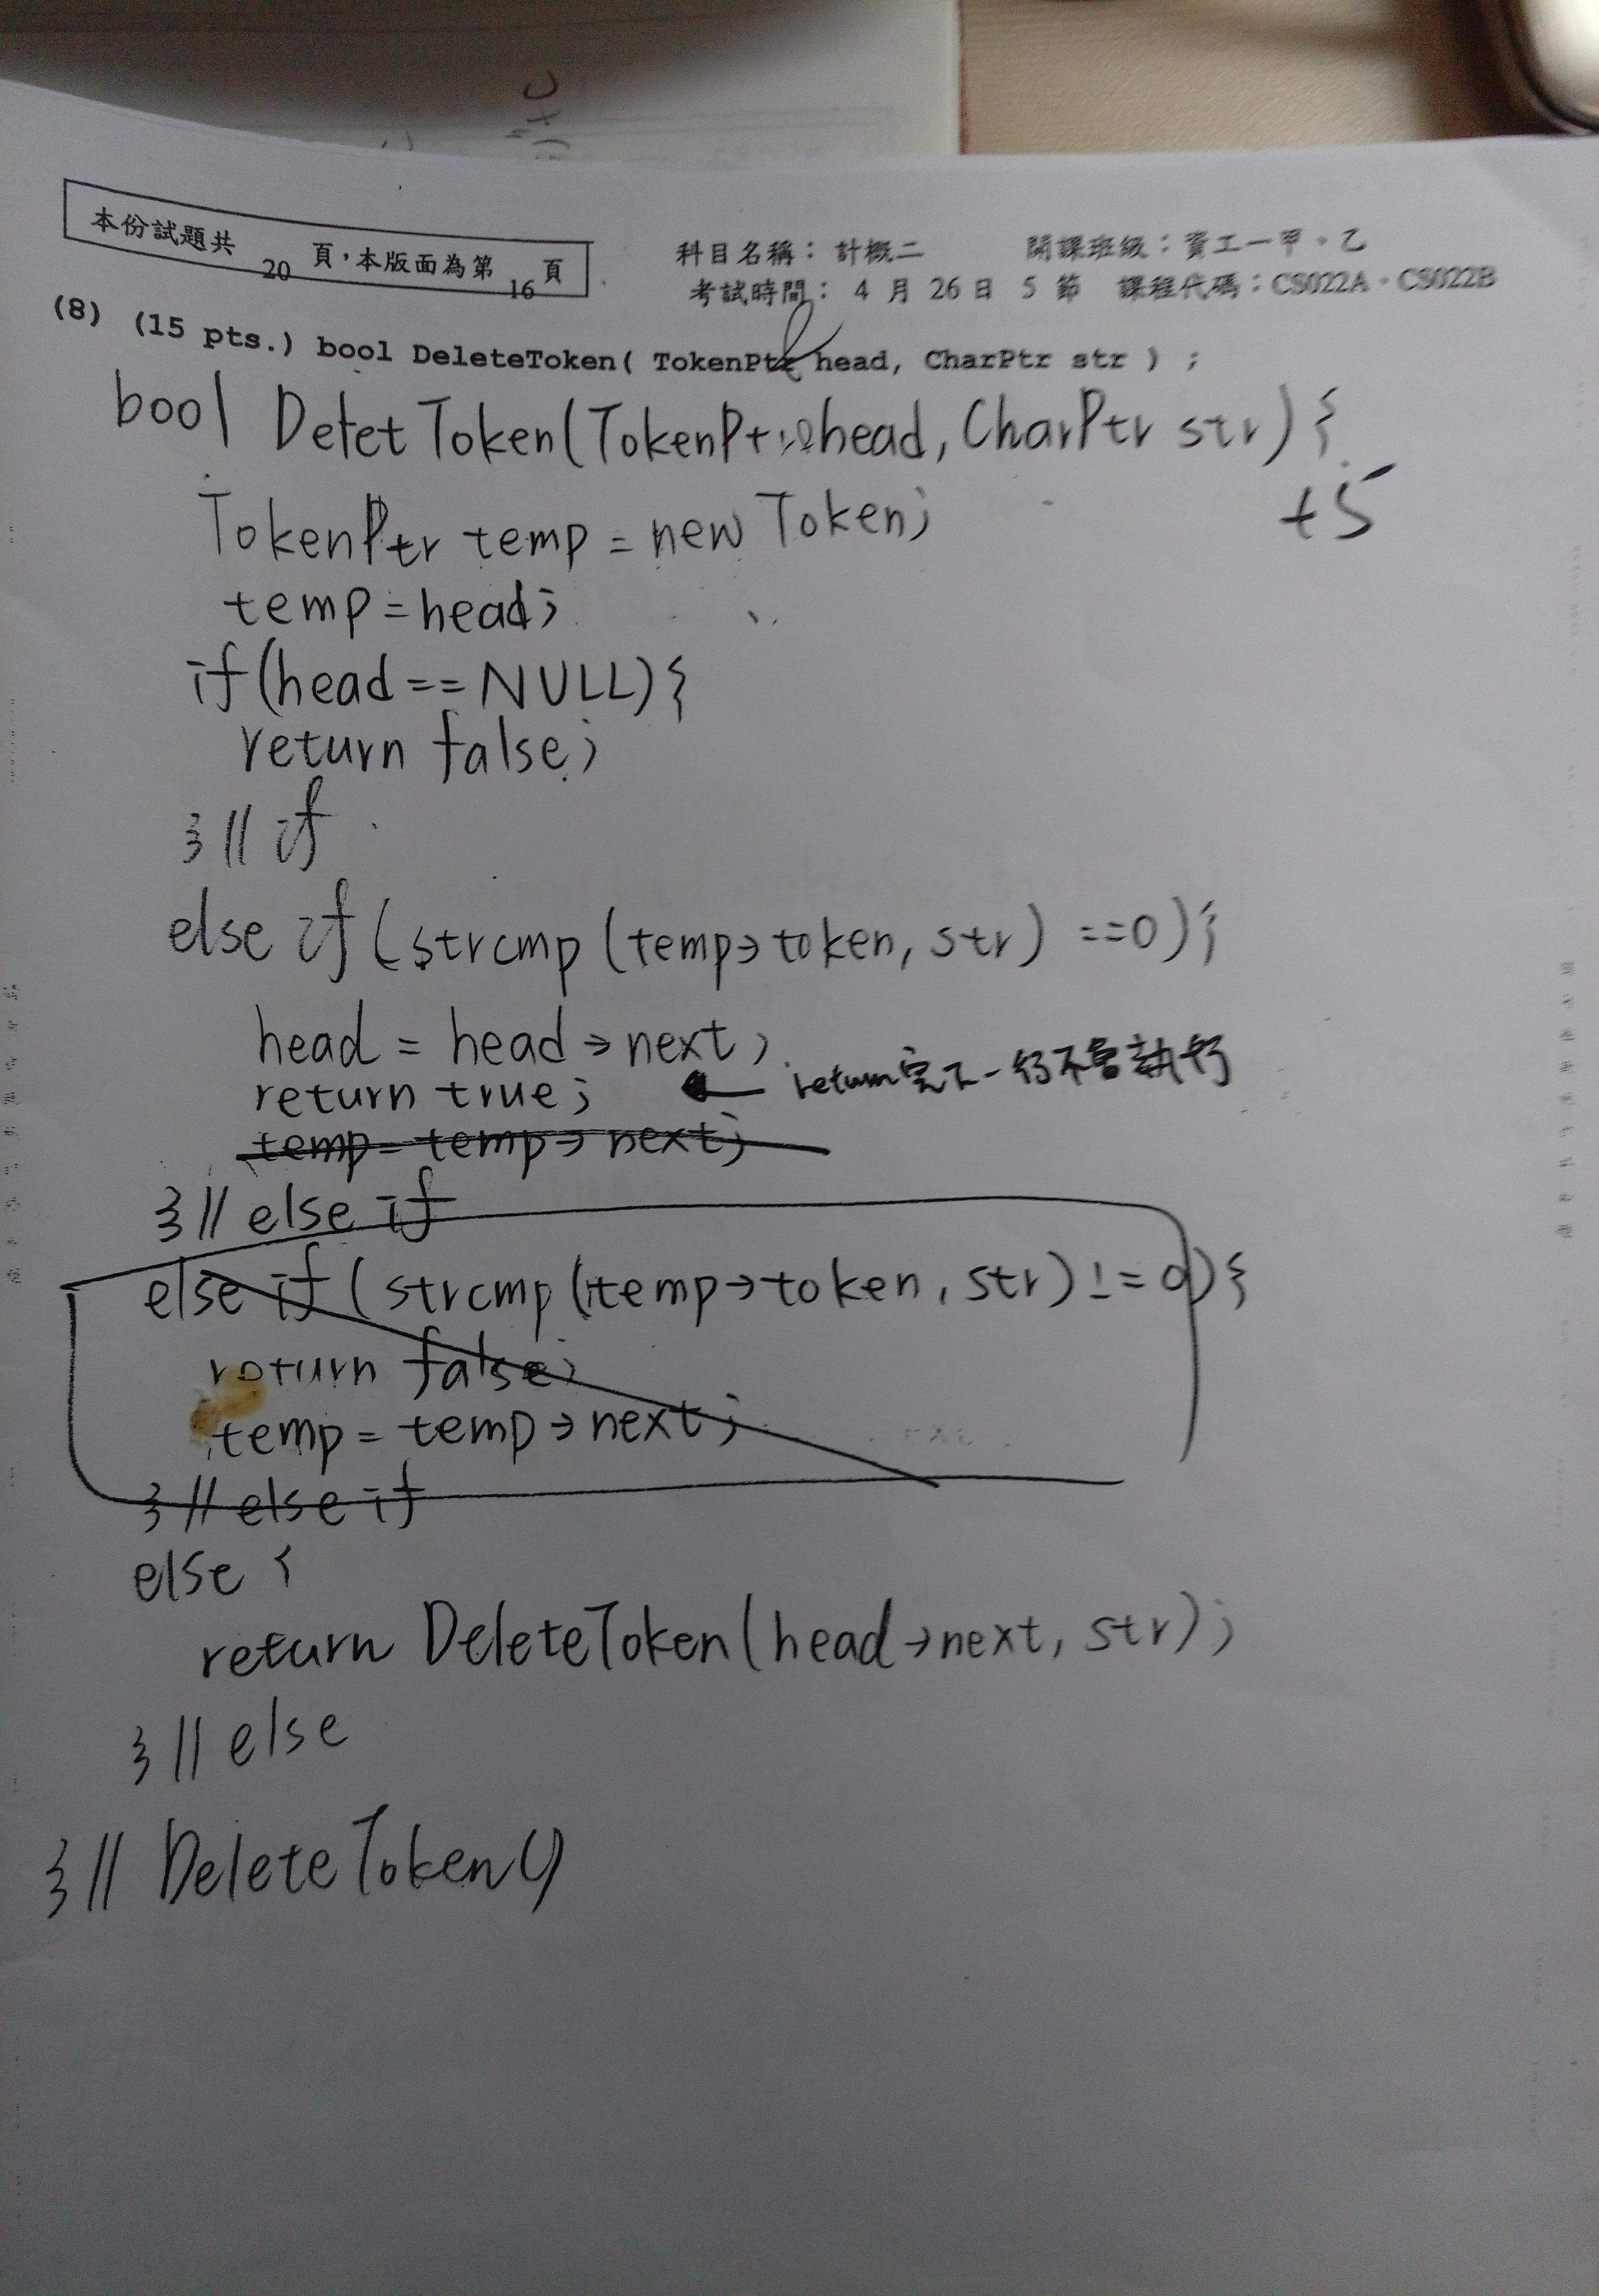 本份試題共 20 頁，本版面為第 16 頁
科目名稱：計概二 開課班級：資工一甲、乙
考試時間：4 月 26 日 5 節 課程代碼：CS022A、CS022B
(8) (15 pts.) bool DeleteToken( TokenPtr head, CharPtr str ) ;
&
bool Detet Token(TokenPtr & head, CharPtr str) {
+5
TokenPtr temp = new Token;
temp = head;
if(head == NULL) {
return false;
} // if
else if (strcmp (temp→token, str) ==0) {
head = head → next;
return true; ← return完下一行不會執行
temp = temp → next;
} // else if
else if (strcmp (temp→token, str) != 0) {
return false;
temp = temp → next;
} // else if
else {
return DeleteToken(head→next, str);
} // else
} // DeleteToken()